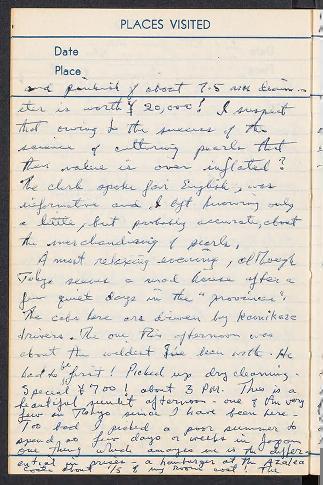 PLACES VISITED
Date
Place
and pinkish of about 7.5 mm diam-
eter is worth $20,000! I suspect
that owing to the success of the
science of culturing pearls that
their value is over inflated?
The clerk spoke fair English, was
informative and I left knowing only
a little, but probably accurate, about
the merchandising of pearls.
A most relaxing evening, although
Tokyo seems a mad house after a
few quiet days in the "provinces".
The cabs here are driven by Kamikaze
drivers. The one this afternoon was
about the wildest I've been with. He
had to be first! Picked up dry cleaning.
Special ¥700! about 3 PM. This is a
beautiful sunlit afternoon - one of the very
few in Tokyo since I have been here.
Too bad I picked a poor summer to
spend so few days or weeks in Japan
one thing which amazes me is the differ-
ential in prices a hamburger at the Azalea
costs about 1/5 of my room cost! The